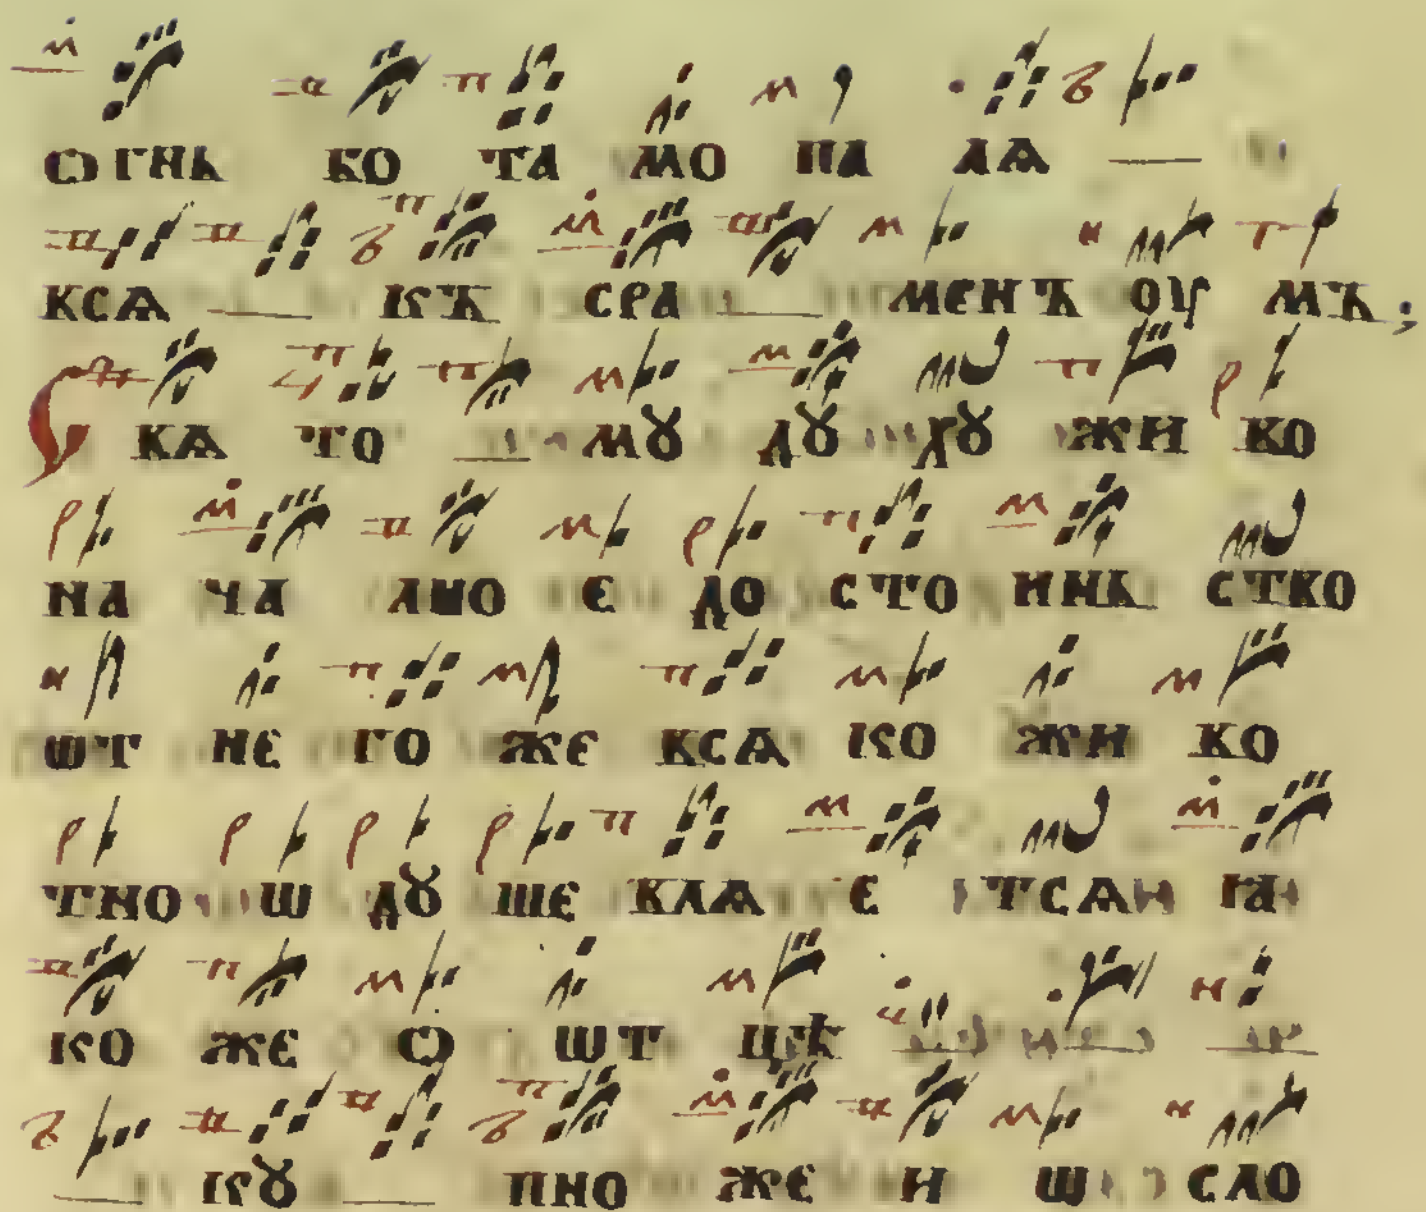 ѻгнь во та мо па лѧ
всѧ къ сра менъ оу мъ;
С вѧ то мꙋ дꙋ хꙋ жи во
на ча лно е до сто инь ство
ѡт не го же всѧ ко жи во
тно ѡ дꙋ ше влѧ е тсѧ ꙗ
ко же ѻ ѡт цѣ
кꙋ пно же и ѡ сло